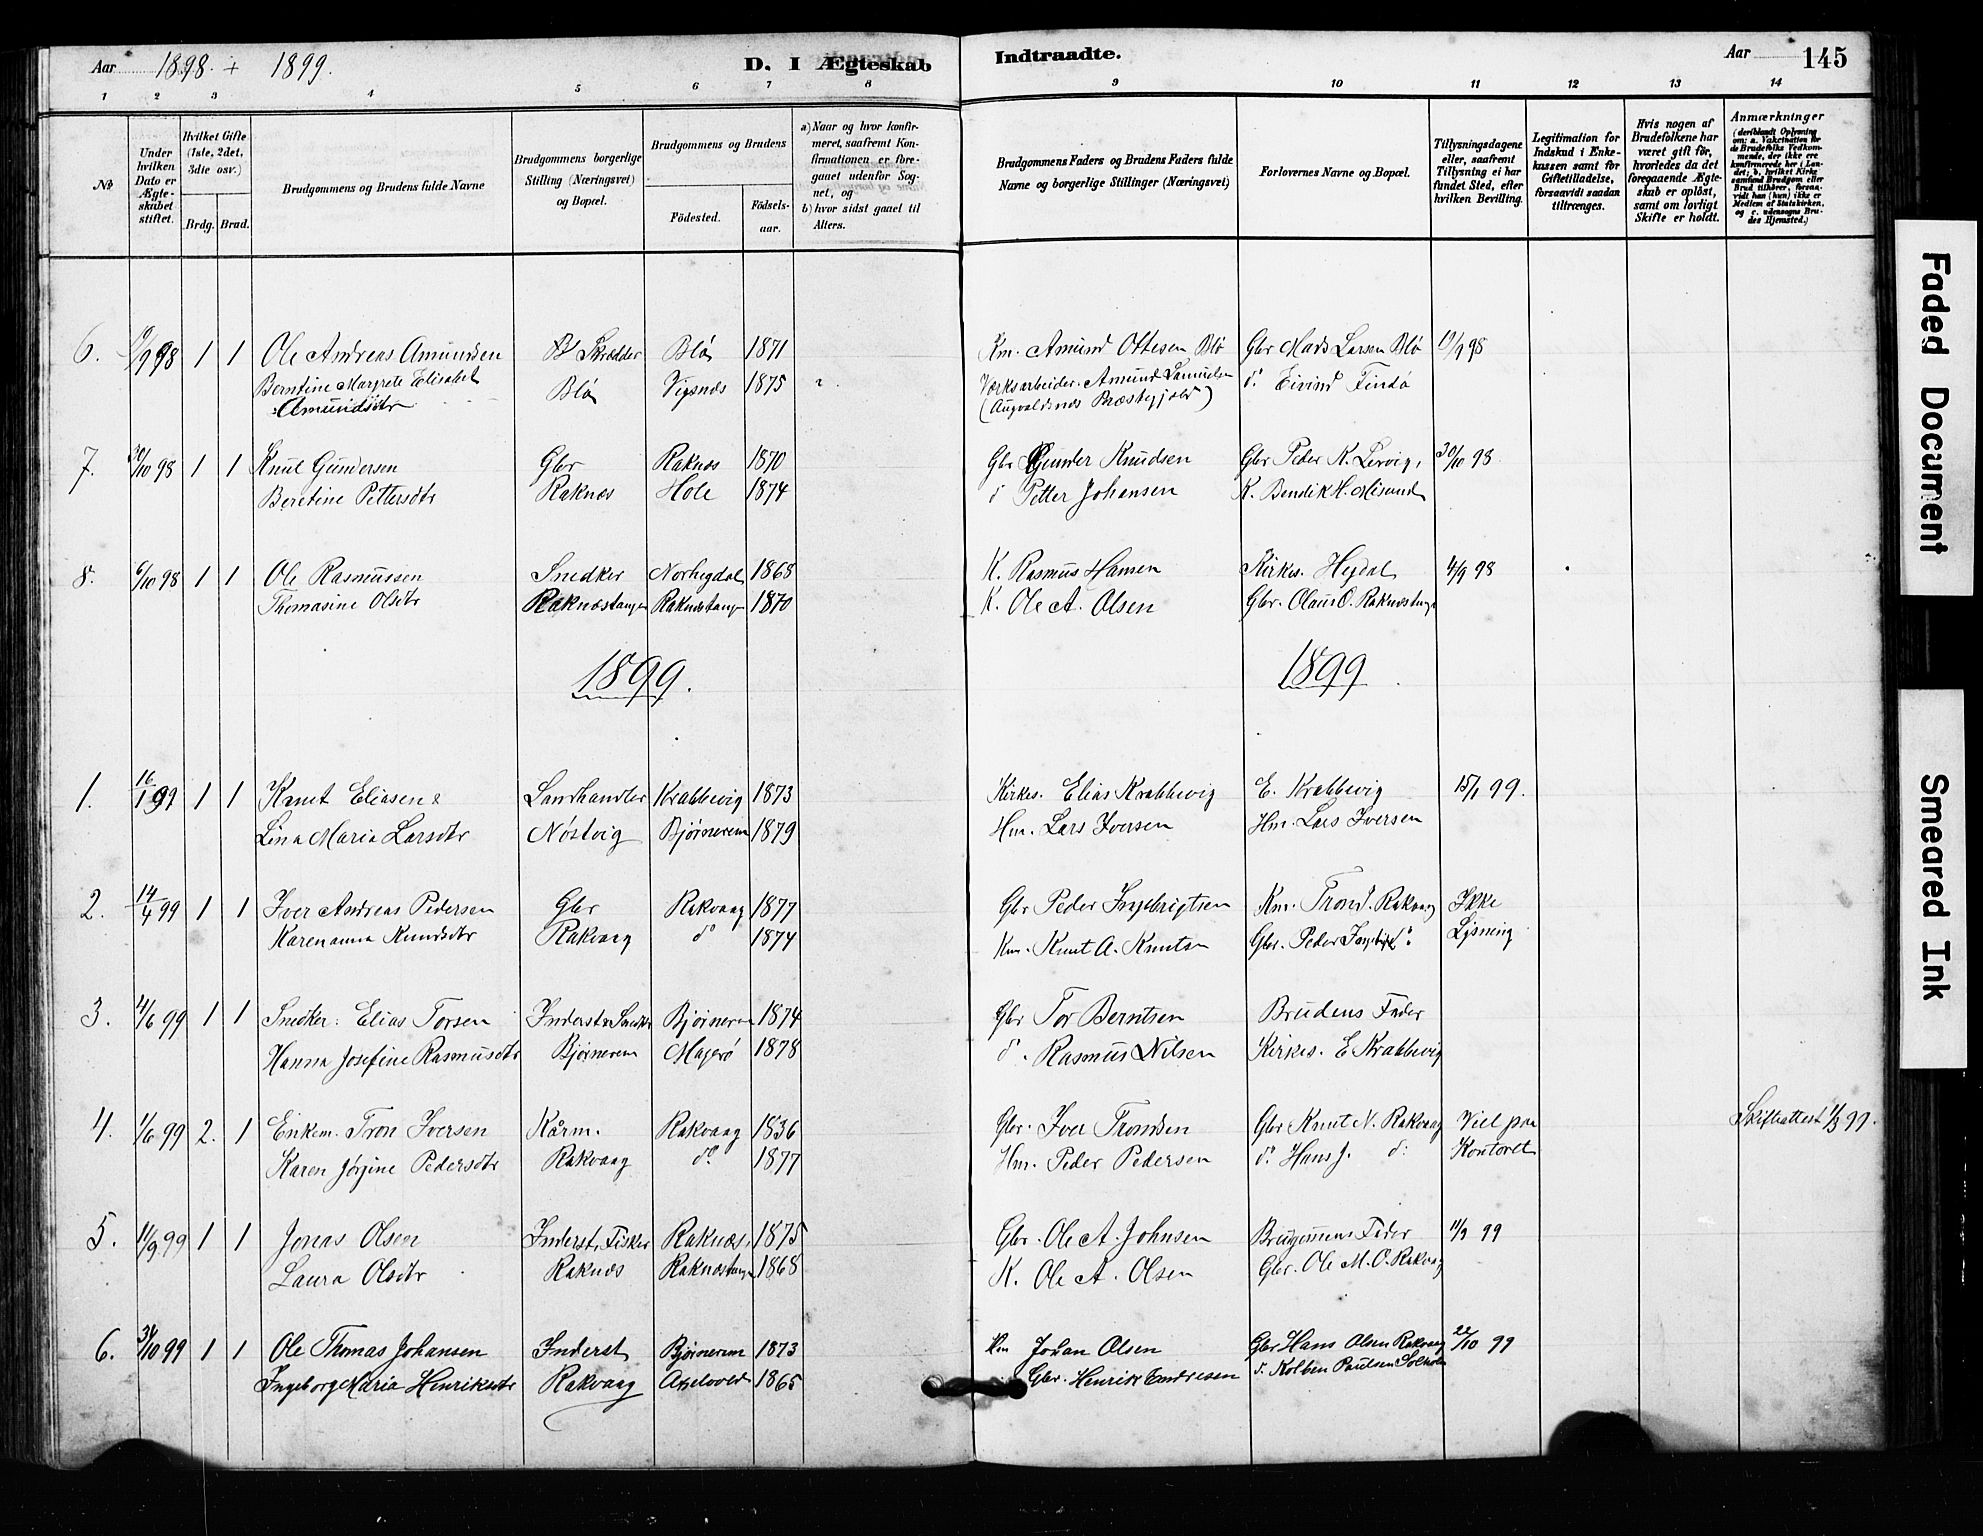 Aar 1898 + 1899. D. I Ægteskab Indtraadte. Aar 145
1 2 3 4 5 6 7 8 9 10 11 12 13 14
No
Under hvilken Dato er Ægteskabet stiftet.
Hvilket Gifte (1ste, 2det, 3die osv.)
Brdg. Brud.
Brudgommens og Brudens fulde Navne
Brudgommens borgerlige Stilling (Næringsvei) og Bopæl.
Brudgommens og Brudens
Födested. Födsels-aar.
a) Naar og hvor konfirmeret, saafremt Konfirmationen er foregaaet udenfor Sognet, og
b) hvor sidst gaaet til Alters.
Brudgommens Faders og Brudens Faders fulde Navne og borgerlige Stillinger (Næringsvei)
Forlovernes Navne og Bopæl.
Tillysningsdagene eller, saafremt Tillysning ei har fundet Sted, efter hvilken Bevilling.
Legitimation for Indskud i Enkekassen samt for Giftetilladelse, forsaavidt saadan tiltrænges.
Hvis nogen af Brudefolkene har været gift før, hvorledes da det foregaaende Ægteskab er opløst, samt om lovligt Skifte er holdt.
Anmærkninger (deriblandt Oplysning om: a. Vakcination for de Brudefolks Vedkommende, der ikke ere konfirmerede her i Landet; b. hvilket Kirkesamfund Brudgom eller Brud tilhører, forsaavidt han (hun) ikke er Medlem af Statskirken, og c. udensogns Brudes Hjemsted.)
6. /9 98 1 1 Ole Andreas Amundsen Skrædder Blø 1871 Km. Amund Ottesen Blø Gbr Mads Larsen Blø 11/9 98
Berntine Margrete Elisabet Blø Vigsnæs 1875 Værksarbeider Amund Samuelsen d° Eivind Findø
Amundsdtr (Augvaldsnæs Præstegjæld)
7. 30/10 98 1 1 Knut Gundersen Gbr Raknæs 1870 Gbr Gunder Knudsen Gbr Peder K. Lervig, 30/10 98
Beretine Pettersdtr Raknæs Hole 1874 d Petter Johansen K. Bendik H. Misund
8. 6/10 98 1 1 Ole Rasmussen Snedker Norhegdal 1868 K. Rasmus Hansen Kirkes. Hegdal 4/9 98
Thomasine Olsdtr Raknæstangen Raknæstang 1870 K. Ole A. Olsen Gbr. Olaus O. Raknæstang
1899. 1899
1. 16/1 99 1 1 Knut Eliasen Landhandler Krabbevig 1873 Kirkes. Elias Krabbevig E. Krabbevig 15/1 99.
Lina Maria Larsdtr Nöstvig Bjørnerem 1879 Hm. Lars Iversen Hm. Lars Iversen
2. 14/4 99 1 1 Iver Andreas Pedersen Gbr Rakvaag 1877 Gbr Peder Ingebrigtsen Km. Trond. Rakvaag Ikke
Karenanna Knudsdtr Rakvaag d° 1874 Km. Knut A. Knutsen Gbr. Peder Ingebr d° Lysning
3. 4/6 99 1 1 Snedker: Elias Torsen Inderst Snedk Bjørnerem 1874 Gbr Tor Berntsen Brudens Fader
Hanna Josefine Rasmusdtr Bjørnerem Magerø 1878 d°. Rasmus Nilsen Kirkes. E Krabbevig
4. 1/6 99 2. 1 Enkem. Tron Iversen Kårm. Rakvaag 1836 Gbr. Iver Tronsen Gbr Knut N. Rakvaag Viet paa Skifteattest 1/3 99.
Karen Jørgine Pedersdtr Rakvaag d° 1877 Hm. Peder Pedersen d° Hans J. d: Kontoret
5. 11/9 99 1 1 Jonas Olsen Inderst, Fisker Raknæs 1875 Gbr. Ole A. Johnsen Brudgommens Fader 11/9 99
Laura Olsdtr Raknæs Raknæstangen 1868 K. Ole A. Olsen Gbr. Ole M. O. Rakvaag
6. 31/10 99 1 1 Ole Thomas Johansen Inderst Bjørnerem 1873 Km Johan Olsen Gbr Hans Olsen Rakvaag 22/10 99
Ingeborg Maria Henriksdtr Rakvaag Axelvold 1865 Gbr. Henrik Endresen d. Kolben Paulsen Solholm
Faded Document
Smeared Ink